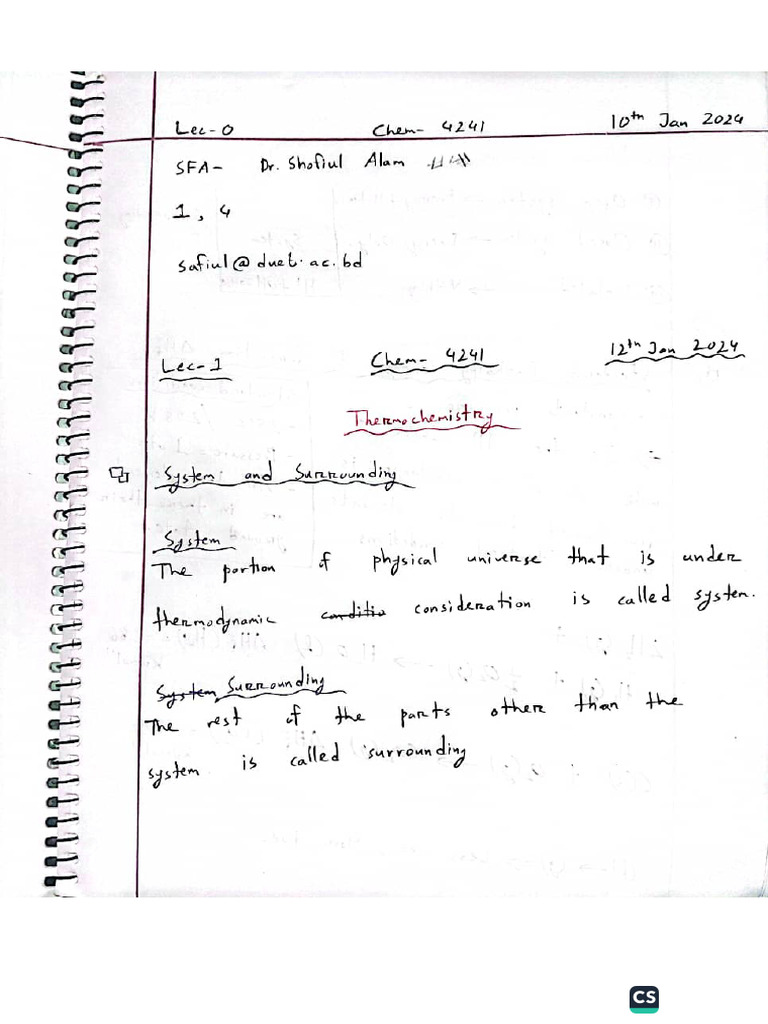 Lec-0 Chem- 4241 10th Jan 2024
SFA- Dr. Shofiul Alam
1, 4
safiul@duet.ac.bd
Lec-1 Chem- 4241 12th Jan 2024
Thermochemistry
System and Surrounding
System
The portion of physical universe that is under
thermodynamic conditio consideration is called system.
System Surrounding
The rest of the parts other than the
system is called surrounding
CS